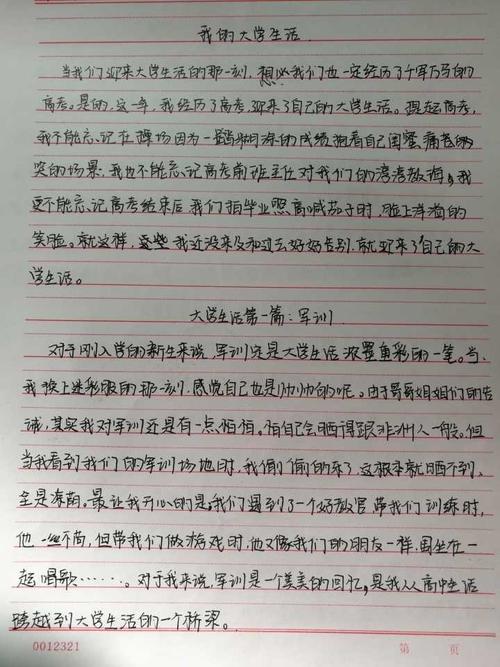 我的大学生活
当我们迎来大学生活的那一刻，想必我们也一定经历了千军万马的
高考。是的，这一年，我经历了高考，迎来了自己的大学生活。提起高考，
我不能忘记在操场因为一路的成绩抱着自己闺蜜痛苦的
哭的场景，我也不能忘记高考前班主任对我们的谆谆教诲，我
更不能忘记高考结束后我们拍毕业照高喊茄子时，脸上洋溢的
笑脸。就这样，我还没来及和过去好好告别，就迎来了自己的大
学生活。
大学生活第一篇：军训
对于刚入学的新生来说，军训定是大学生活浓墨重彩的一笔。当
我换上迷彩服的那一刻，感觉自己也是帅帅的呢。由于哥哥姐姐们的告
诫，其实我对军训还是有一点怕怕。怕自己会晒得跟非洲人一般。但
当我看到我们的军训场地时，我偷偷的乐了，这根本就晒不到，
全是凉荫。最让我开心的是我们遇到了一个好教官，带我们训练时，
他一丝不苟，但带我们做游戏时，他又像我们的朋友一样，围坐在一
起唱歌……。对于我来说，军训是一个美美的回忆，是我从高中生活
跨越到大学生活的一个桥梁。
0012321 第 页